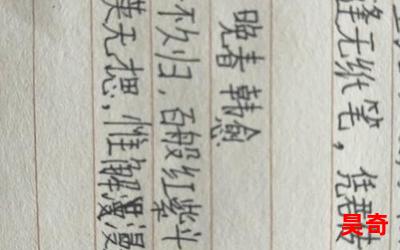 逢无纸笔，凭君
晚春 韩愈
不久归，百般红紫斗
荚无才思，惟解漫漫
昊奇